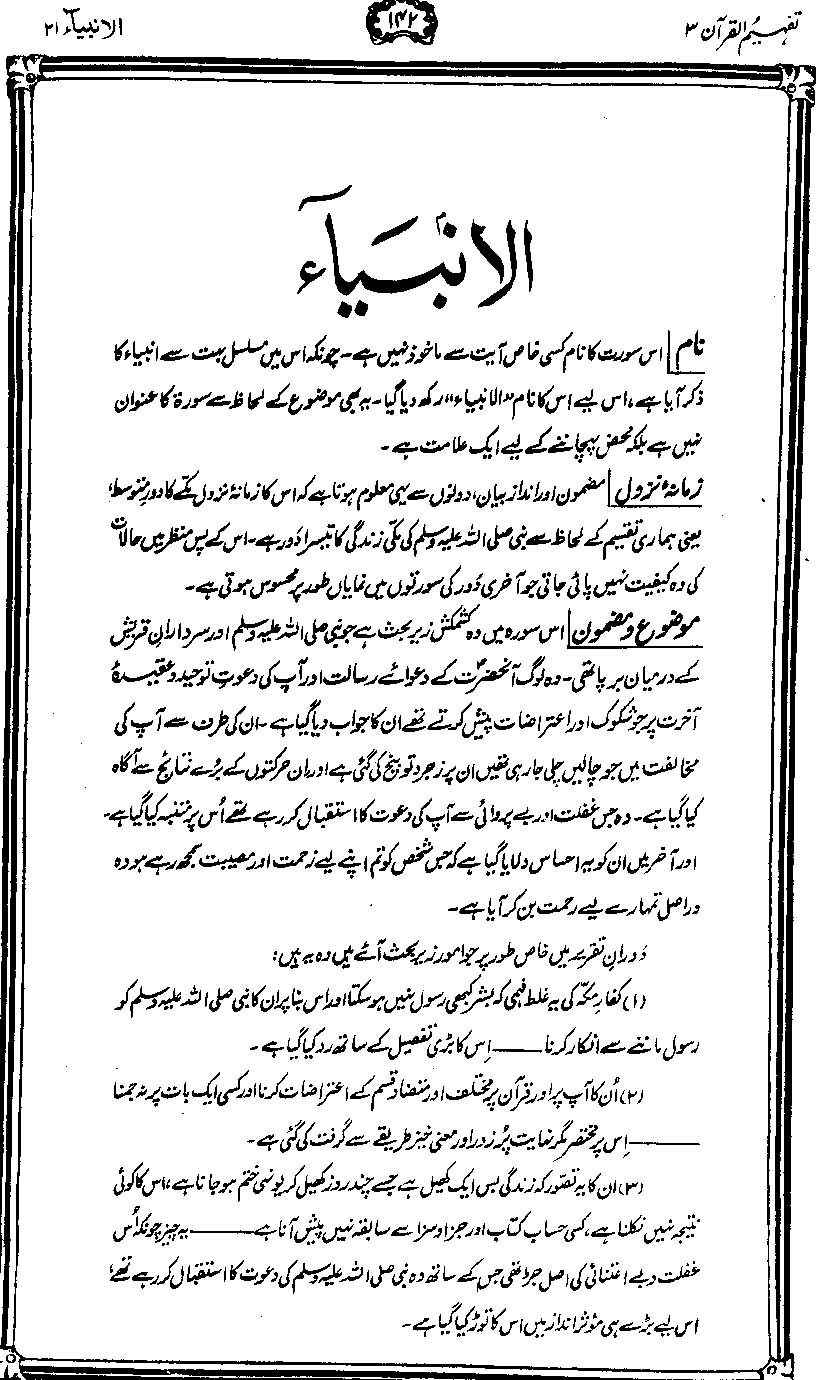 تفہیم القرآن ۳
۱۴۲
الانبیآء ۲۱
الانبیآء
نام اس سورت کا نام کسی خاص آیت سے ماخوذ نہیں ہے۔ چونکہ اس میں مسلسل بہت سے انبیاء کا
ذکر آیا ہے، اس لیے اس کا نام ”الانبیاء“ رکھ دیا گیا۔ یہ بھی موضوع کے لحاظ سے سورۃ کا عنوان
نہیں ہے بلکہ محض پہچاننے کے لیے ایک علامت ہے۔
زمانۂ نزول مضمون اور انداز بیان، دونوں سے یہی معلوم ہوتا ہے کہ اس کا زمانۂ نزول مکے کا دورِ متوسط،
یعنی ہماری تقسیم کے لحاظ سے نبی صلی اللہ علیہ وسلم کی مکی زندگی کا تیسرا دَور ہے۔ اس کے پس منظر میں حالات
کی وہ کیفیت نہیں پائی جاتی جو آخری دَور کی سورتوں میں نمایاں طور پر محسوس ہوتی ہے۔
موضوع و مضمون اس سورہ میں وہ کشمکش زیر بحث ہے جو نبی صلی اللہ علیہ وسلم اور سردارانِ قریش
کے درمیان برپا تھی۔ وہ لوگ آنحضرتؐ کے دعوائے رسالت اور آپ کی دعوتِ توحید و عقیدۂ
آخرت پر جو شکوک اور اعتراضات پیش کرتے تھے ان کا جواب دیا گیا ہے۔ ان کی طرف سے آپ کی
مخالفت میں جو چالیں چلی جا رہی تھیں ان پر زجر و توبیخ کی گئی ہے اور ان حرکتوں کے بُرے نتائج سے آگاہ
کیا گیا ہے۔ وہ جس غفلت اور بے پروائی سے آپ کی دعوت کا استقبال کر رہے تھے اُس پر متنبہ کیا گیا ہے۔
اور آخر میں ان کو یہ احساس دلایا گیا ہے کہ جس شخص کو تم اپنے لیے زحمت اور مصیبت سمجھ رہے ہو وہ
دراصل تمہارے لیے رحمت بن کر آیا ہے۔
دَورانِ تقریر میں خاص طور پر جو امور زیر بحث آئے ہیں وہ یہ ہیں:
(۱) کفارِ مکّہ کی یہ غلط فہمی کہ بشر کبھی رسول نہیں ہو سکتا اور اس بنا پر ان کا نبی صلی اللہ علیہ وسلم کو
رسول ماننے سے انکار کرنا ——— اِس کا بڑی تفصیل کے ساتھ رد کیا گیا ہے۔
(۲) اُن کا آپ پر اور قرآن پر مختلف اور متضاد قسم کے اعتراضات کرنا اور کسی ایک بات پر نہ جمنا
——— اِس پر مختصر مگر نہایت پُرزور اور معنی خیز طریقے سے گرفت کی گئی ہے۔
(۳) ان کا یہ تصور کہ زندگی بس ایک کھیل ہے جسے چند روز کھیل کر یونہی ختم ہو جانا ہے، اس کا کوئی
نتیجہ نہیں نکلنا ہے، کسی حساب کتاب اور جزا و سزا سے سابقہ نہیں پیش آنا ہے ——— یہ چیز چونکہ اُس
غفلت و بے اعتنائی کی اصل جڑ تھی جس کے ساتھ وہ نبی صلی اللہ علیہ وسلم کی دعوت کا استقبال کر رہے تھے،
اس لیے بڑے ہی مؤثر انداز میں اس کا توڑ کیا گیا ہے۔